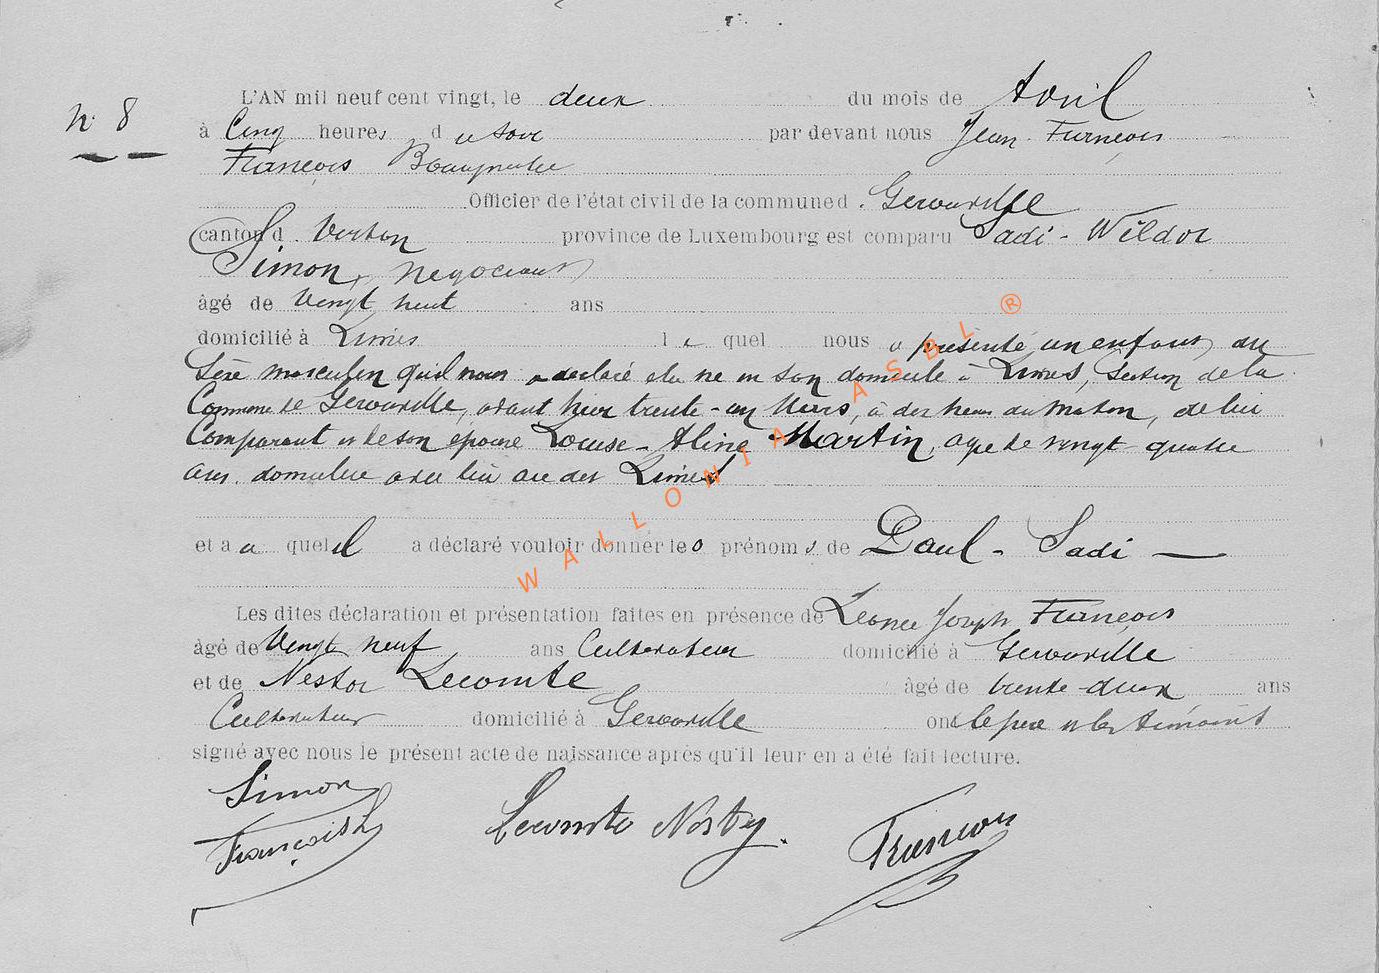 N° 8
L'AN mil neuf cent vingt, le deux du mois de Avril
à Cinq heures du soir par devant nous Jean François
François
Officier de l'état civil de la commune d. Gerouville
canton d. Virton province de Luxembourg est comparu Sadi - Wildor
Simon, négociant
âgé de vingt huit ans
domicilié à Limes le quel nous a présenté un enfant du
Sexe masculin qu'il nous a déclaré être né en son domicile à Limes, Section de la
Commune de Gerouville, avant hier trente-un Mars, à dix heures du matin, de lui
Comparant et de son épouse Louise - Aline Martin, agée de vingt quatre
ans. domiciliée avec lui au dit Limes
et au quel il a déclaré vouloir donner les prénoms de Paul - Sadi
Les dites déclaration et présentation faites en présence de Léonce Joseph François
âgé de Vingt neuf ans Cultivateur domicilié à Gerouville
et de Nestor Lecomte âgé de trente-deux ans
Cultivateur domicilié à Gerouville ont le père et les témoins
signé avec nous le présent acte de naissance après qu'il leur en a été fait lecture.
Simon
François L
Lecomte
François
WALLONIA ASBL ®